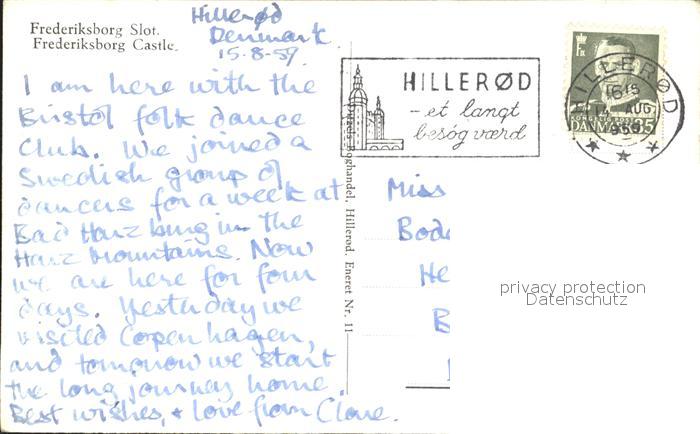 Frederiksborg Slot.
Frederiksborg Castle.
Hillerød
Denmark.
15-8-59
I am here with the
Bristol folk dance
Club. We joined a
Swedish group of
dancers for a week at
Bad Harzburg in the
Harz Mountains. Now
we are here for four
days. Yesterday we
visited Copenhagen,
and tomorrow we start
the long journey home.
Best wishes, & love from Clare.
HILLERØD
- et langt
besøg værd
HILLERØD
AUG
1959
DANMARK 35
Boghandel, Hillerød. Eneret Nr. 11
Miss
Bod
He
B
privacy protection
Datenschutz